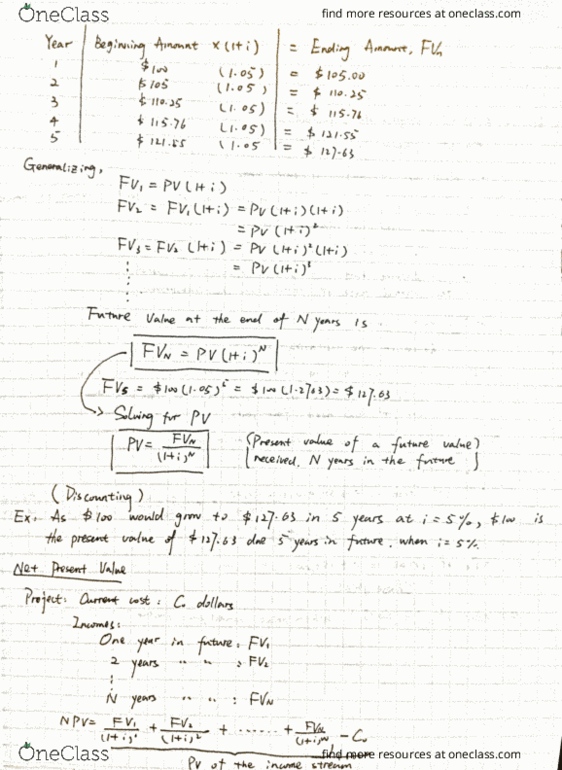 OneClass find more resources at oneclass.com
Year Beginning Amount x (1+i) = Ending Amount, FVₙ
1 $100 (1.05) = $105.00
2 $105 (1.05) = $110.25
3 $110.25 (1.05) = $115.76
4 $115.76 (1.05) = $121.55
5 $121.55 (1.05 = $127.63
Generalizing,
FV₁ = PV(1+i)
FV₂ = FV₁(1+i) = PV(1+i)(1+i)
= PV(1+i)²
FV₃ = FV₂ (1+i) = PV (1+i)² (1+i)
= PV(1+i)³
Future Value at the end of N years is
FV_N = PV(1+i)^N
FV₅ = $100(1.05)⁵ = $100(1.2763) = $127.63
Solving for PV
PV = FV_N / (1+i)^N (Present value of a future value)
received, N years in the future
(Discounting)
Ex. As $100 would grow to $127.63 in 5 years at i = 5%, $100 is
the present value of $127.63 due 5 years in future, when i = 5%.
Net Present Value
Project: Current cost: C₀ dollars
Incomes:
One year in future: FV₁
2 years " " : FV₂
⋮
N years " " : FV_N
NPV = FV₁/(1+i)¹ + FV₂/(1+i)² + ...... + FV_N/(1+i)^N - C₀
OneClass find more resources at oneclass.com
PV of the income stream